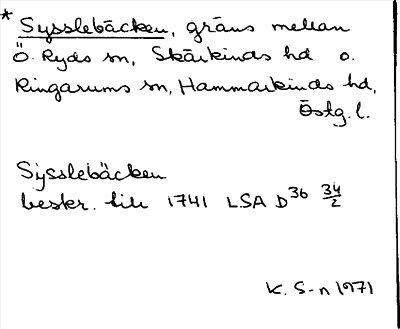 * Sysslebäcken, gräns mellan
Ö. Ryds sn, Skärkinds hd o.
Ringarums sn, Hammarkinds hd,
Östg. l.
Sysslebäcken
beskr. till 1741 LSA D36 34/2
K. S-n 1971